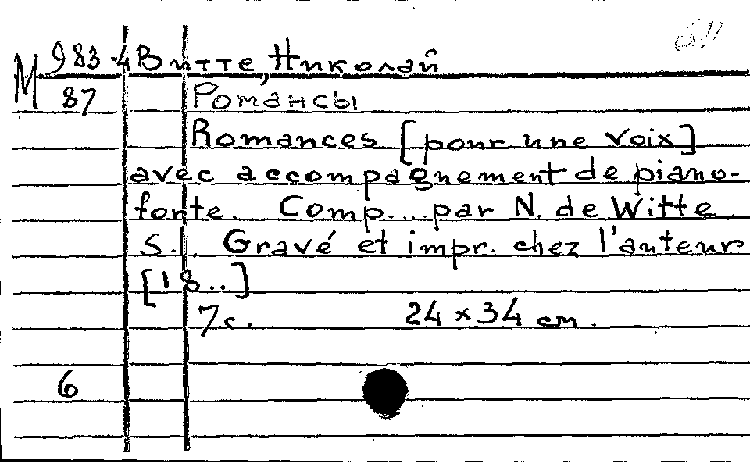 М 983-4 Витте, Николай
87 Романсы
Romances [pour une voix]
avec accompagnement de piano-
forte. Comp... par N. de Witte
S.l. Gravé et impr. chez l'auteur
[18..]
7 с. 24 x 34 cm.
6